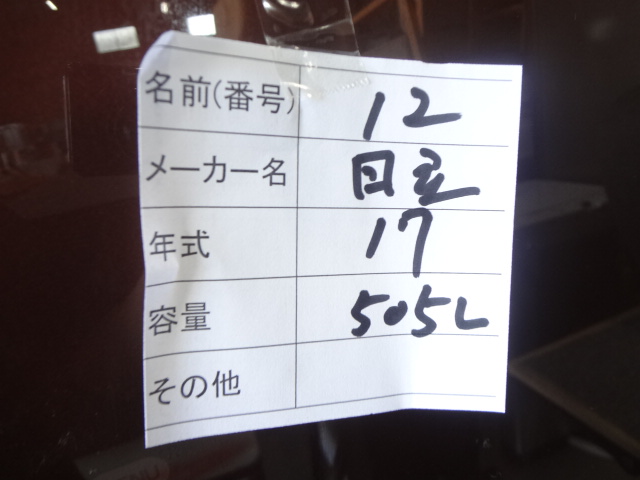 名前(番号) 12
メーカー名 日立
年式 17
容量 505L
その他